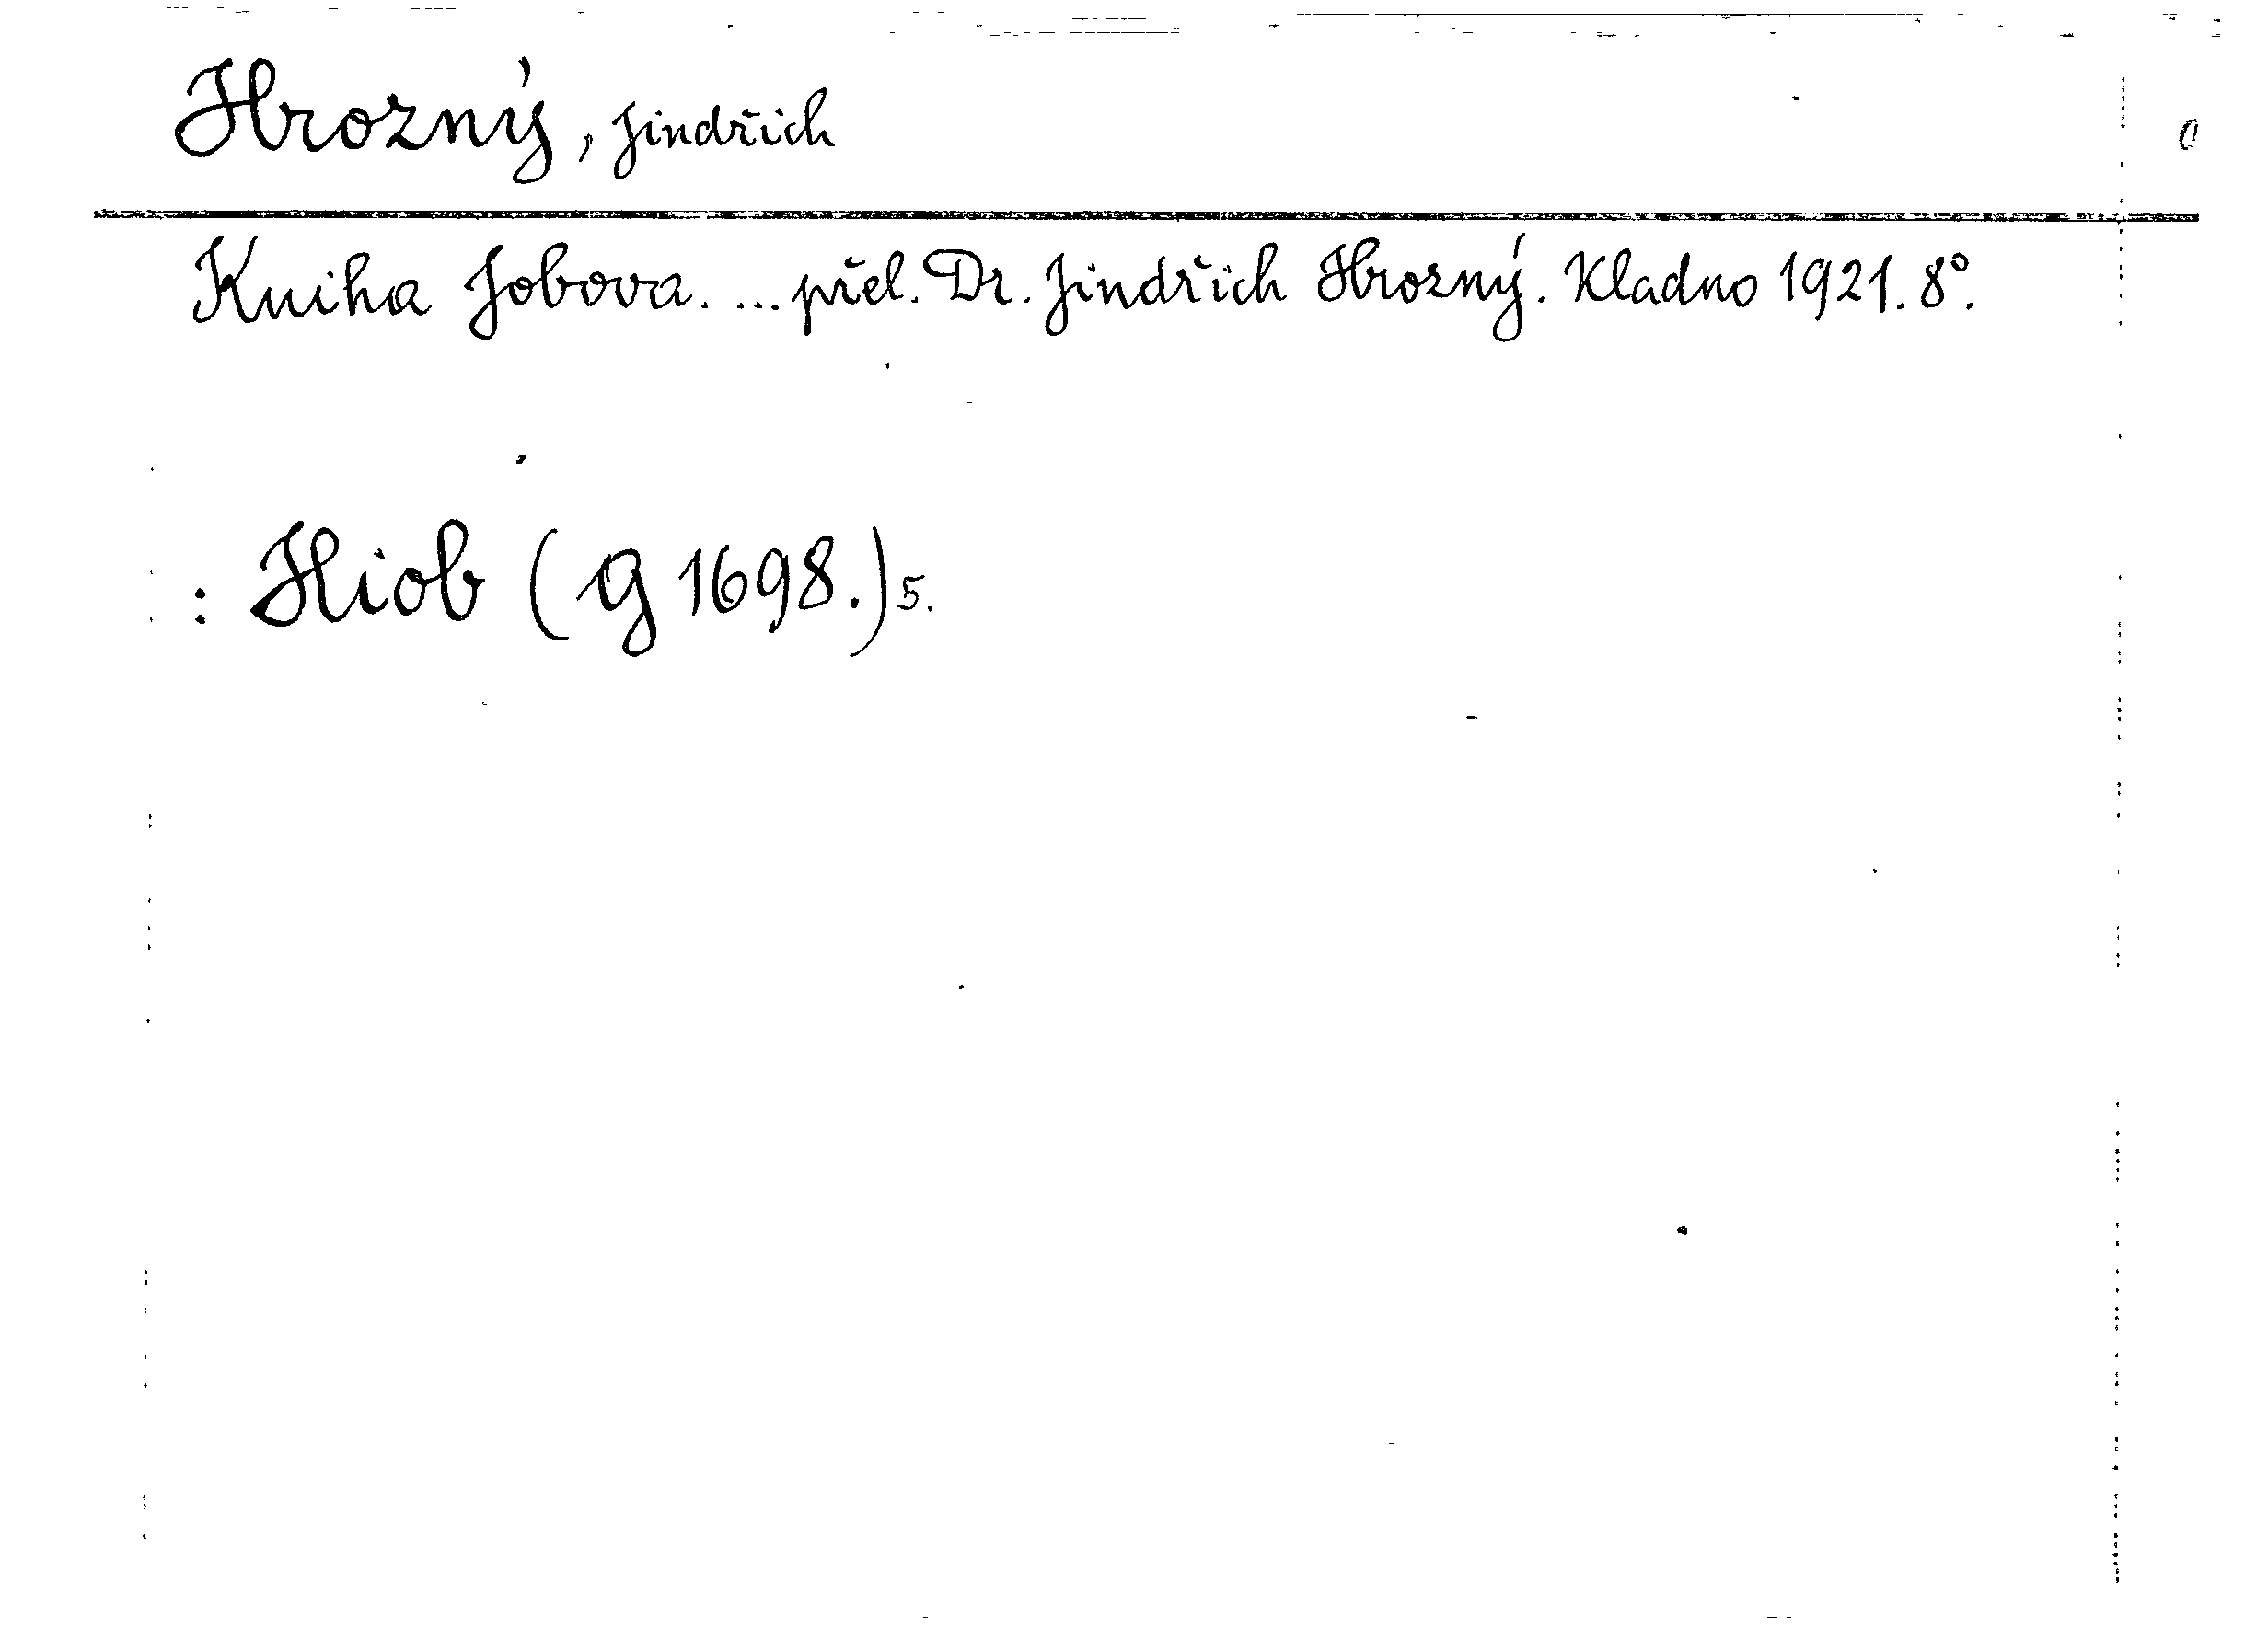 Hrozný, Jindřich
Kniha Jobova. ... přel. Dr. Jindřich Hrozný. Kladno 1921. 8°.
: Hiob (g 1698.) 5.